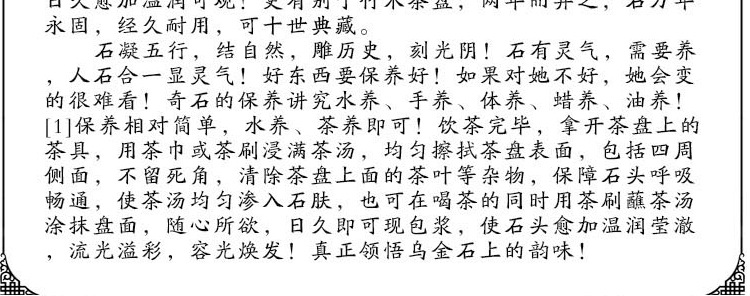 日久愈加温润可观！更有别于竹木茶盘，两年而弃之，石万年
永固，经久耐用，可十世典藏。
石凝五行，结自然，雕历史，刻光阴！石有灵气，需要养
，人石合一显灵气！好东西要保养好！如果对她不好，她会变
的很难看！奇石的保养讲究水养、手养、体养、蜡养、油养！
[1]保养相对简单，水养、茶养即可！饮茶完毕，拿开茶盘上的
茶具，用茶巾或茶刷浸满茶汤，均匀擦拭茶盘表面，包括四周
侧面，不留死角，清除茶盘上面的茶叶等杂物，保障石头呼吸
畅通，使茶汤均匀渗入石肤，也可在喝茶的同时用茶刷蘸茶汤
涂抹盘面，随心所欲，日久即可现包浆，使石头愈加温润莹澈
，流光溢彩，容光焕发！真正领悟乌金石上的韵味！